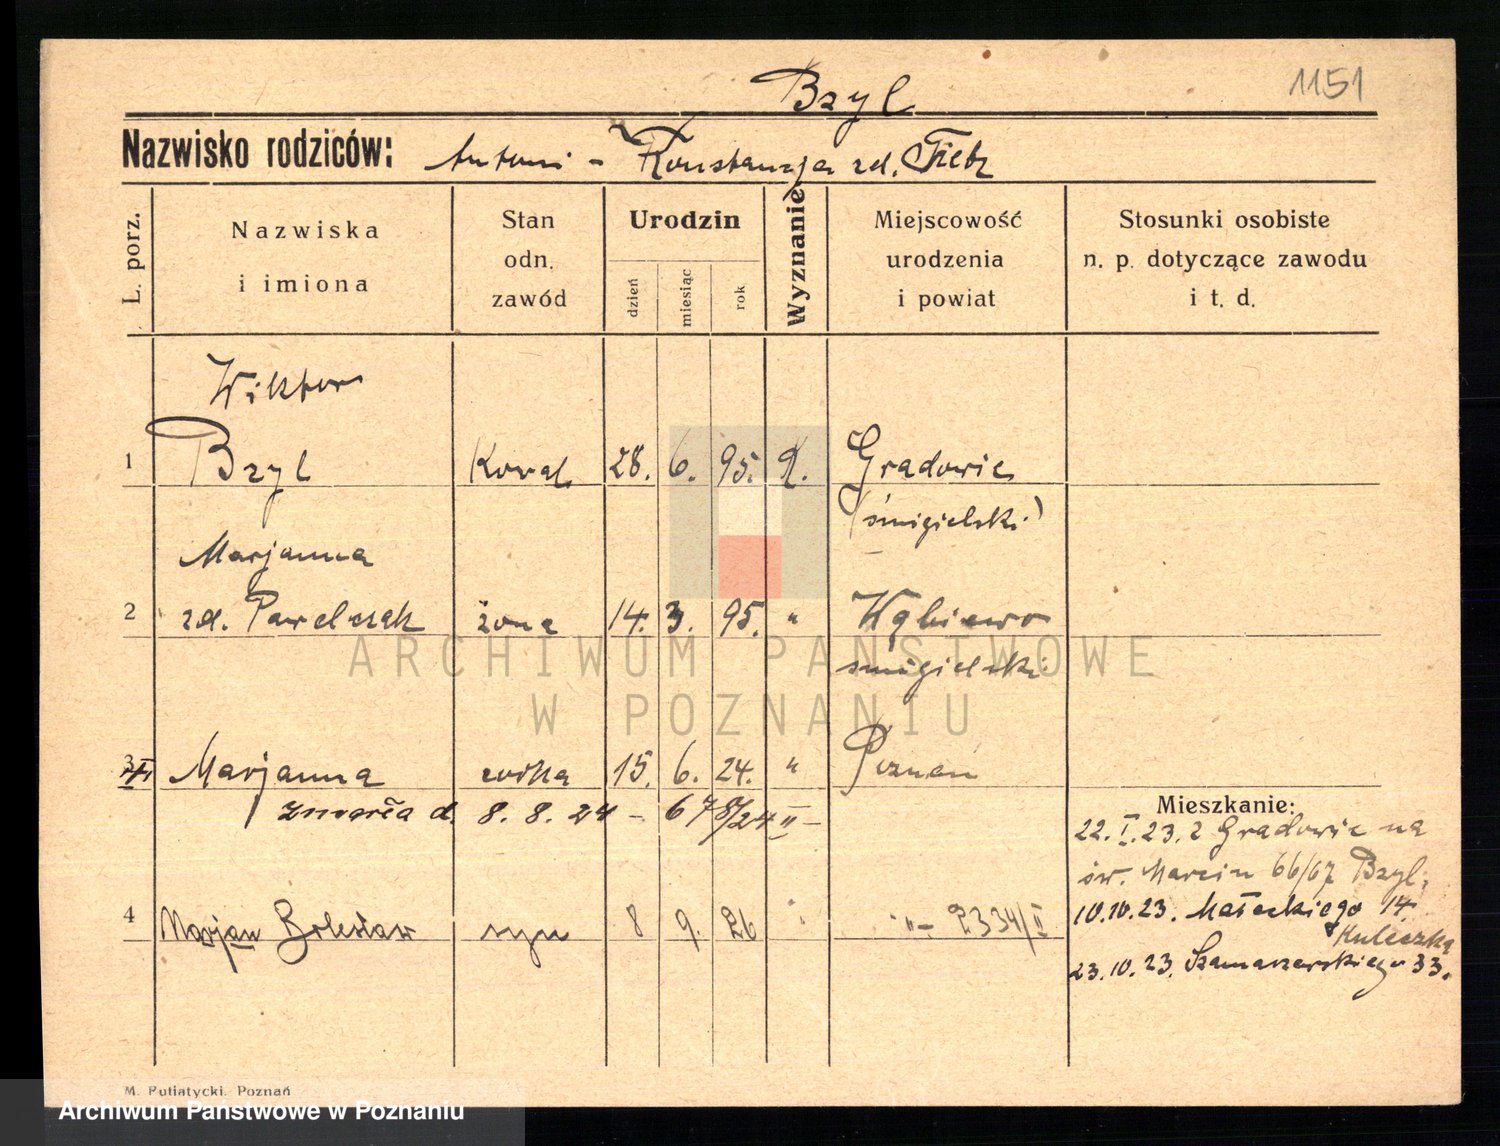 Bzyl
1151
Nazwisko rodziców: Antoni - Konstanzja zd. Fietz
L. porz.
Nazwiska
i imiona
Stan
odn.
zawód
Urodzin
dzień
miesiąc
rok
Wyznanie
Miejscowość
urodzenia
i powiat
Stosunki osobiste
n. p. dotyczące zawodu
i t. d.
Wiktor
1 Bzyl Koval 28. 6. 95. K. Gradowie
(śmigielski)
Marjanna
2 zd. Pawelczak żona 14. 3. 95. " Wąbiewo
śmigielski
3 Marjanna córka 15. 6. 24. " Poznań
zmarła d. 8. 8. 24 - 678/24 II -
Mieszkanie:
22. I. 23. z Gradowie na
św. Marcin 66/67 Bzyl.
10.10.23. Małeckiego 14.
Kuleczka
23.10.23. Szamarzewskiego 33.
4 Marjan Bolesław syn 8 9. 26 " " - 2334/II
M. Putiatycki, Poznań
ARCHIWUM PAŃSTWOWE
W POZNANIU
Archiwum Państwowe w Poznaniu